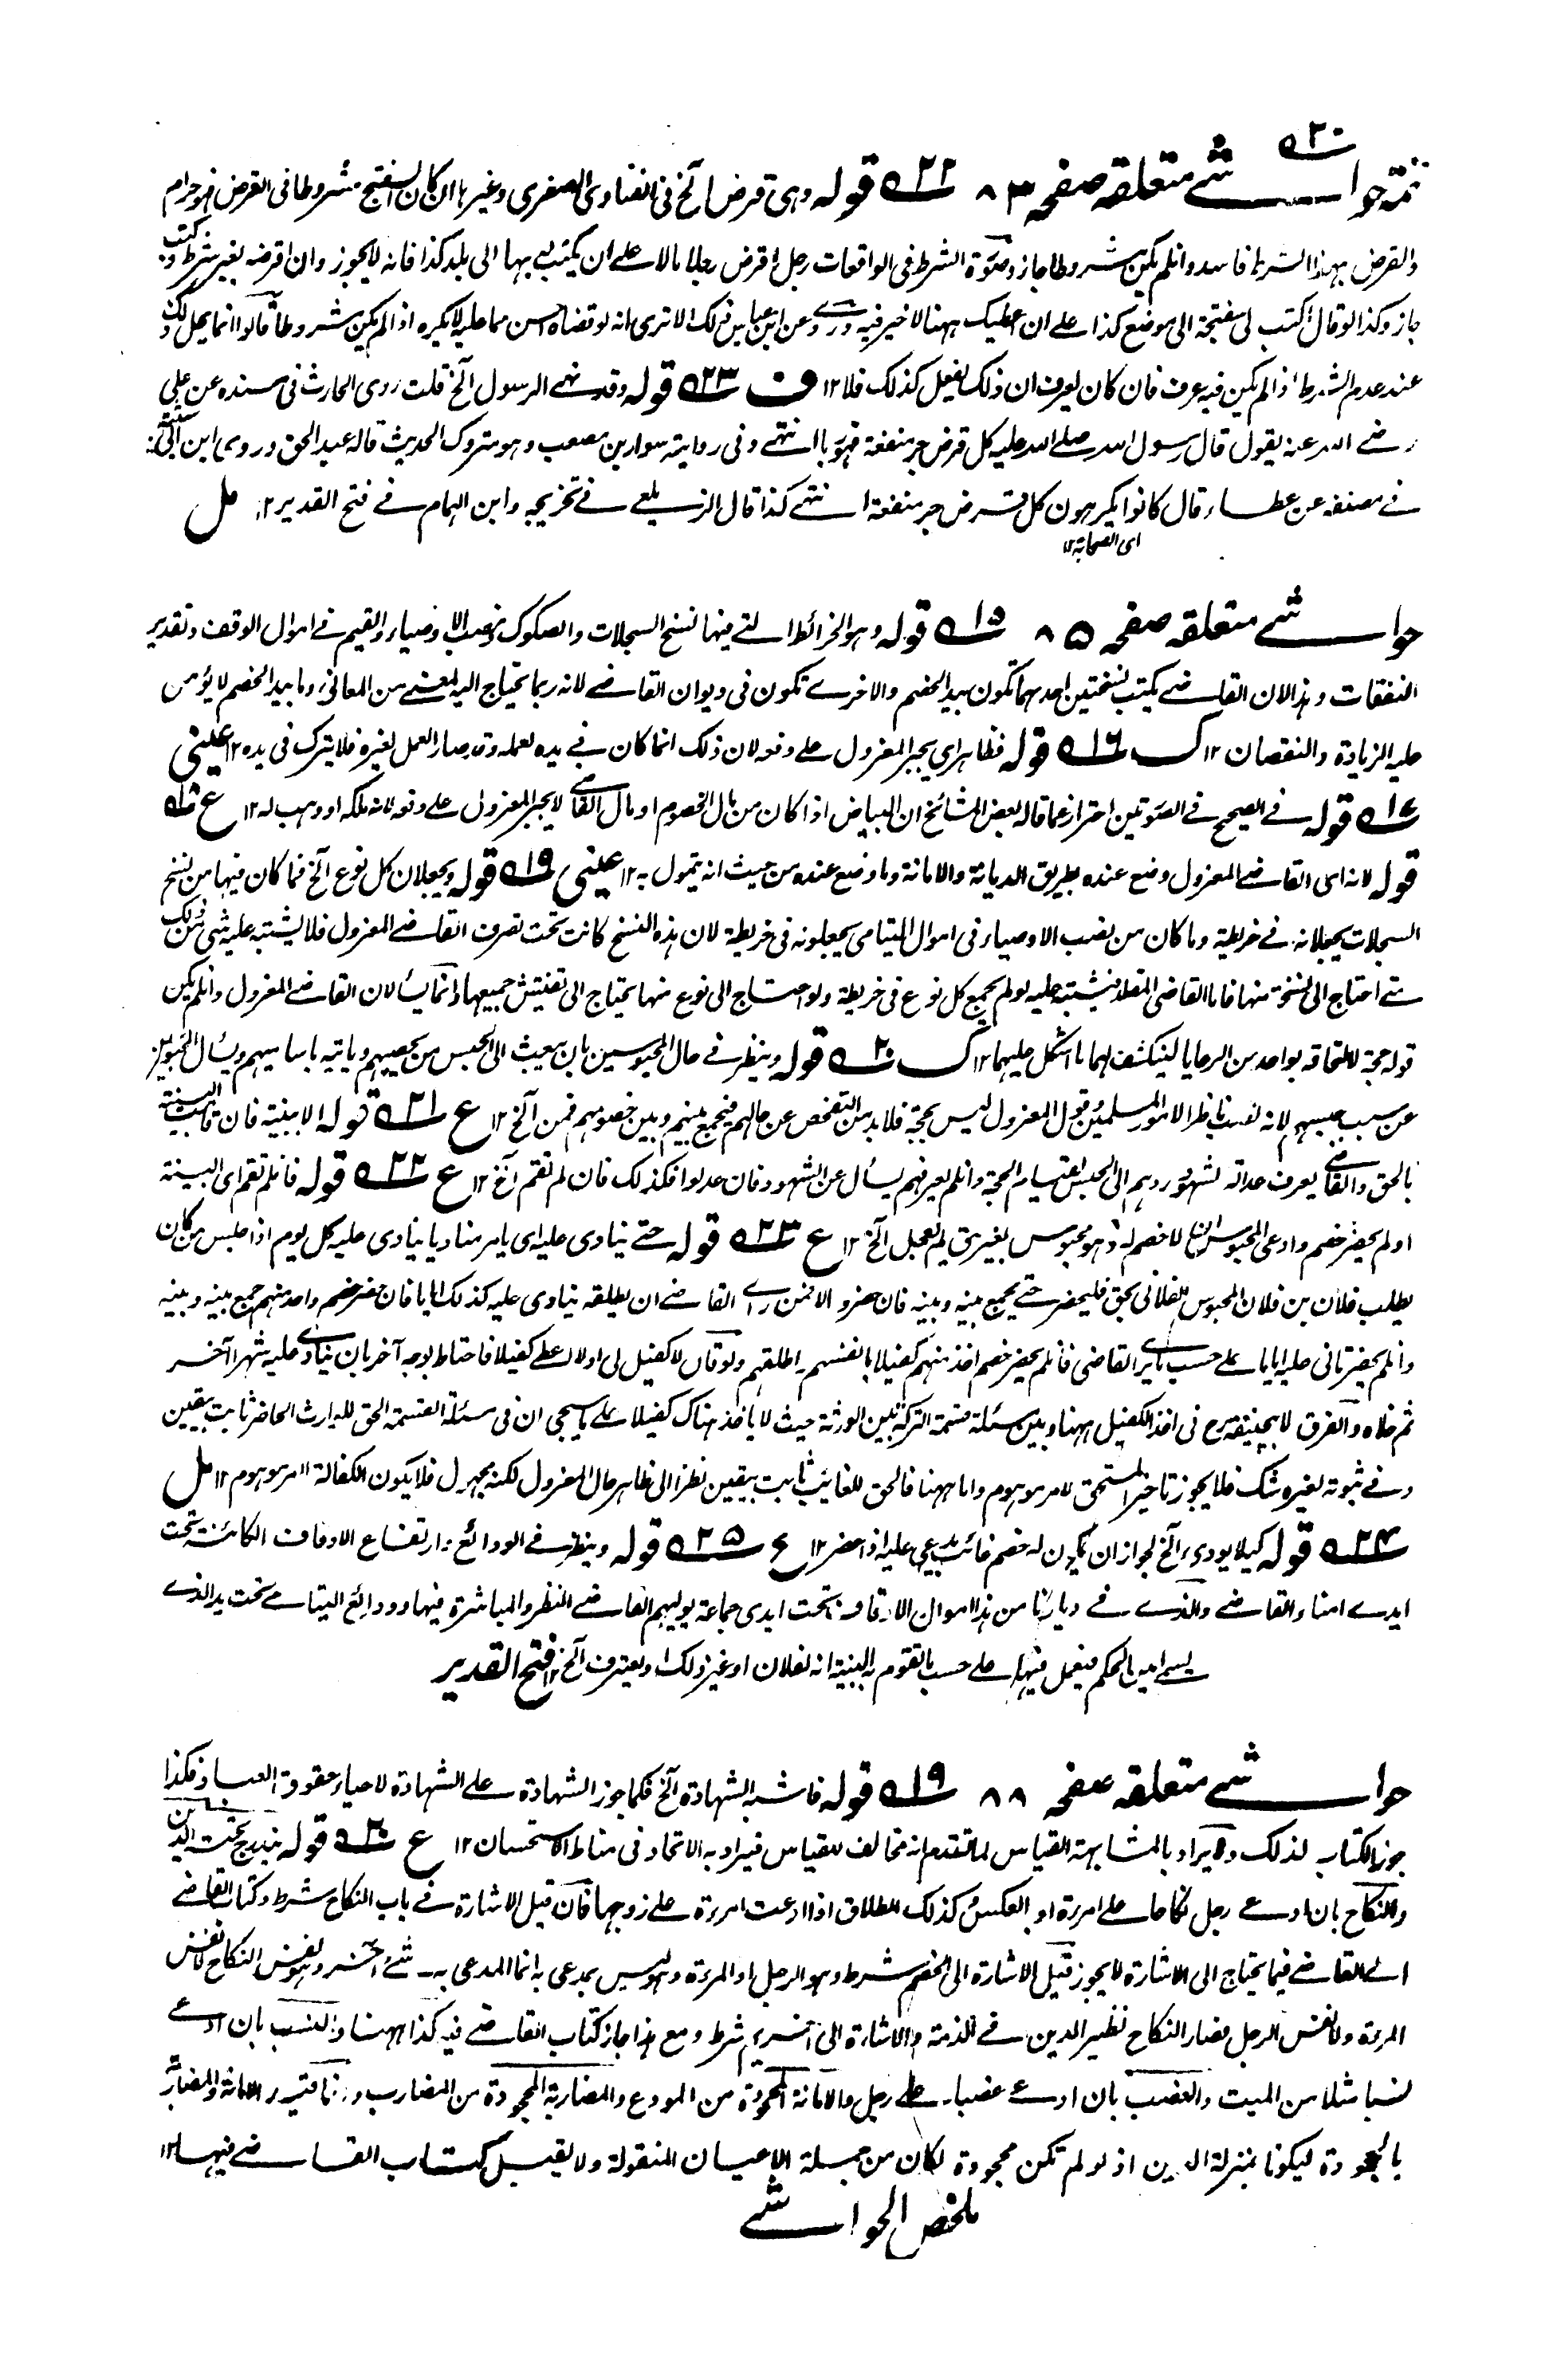 ٥٢٠
تتمة حواشے متعلقہ صفحہ ٨٣ ٥٢٢ قولہ وہی قرض الخ فی الفتاوی الصغری وغیرہا ان کان السفتج مشروطا فی القرض فہو حرام
والقرض بہذا الشرط فاسد وانلم یکن مشروطا جاز وصورة الشرط فی الواقعات رجل اقرض رجلا مالا علے ان یکتب لہ بہا الی بلد کذا فانہ لا یجوز وان اقرضہ بغیر شرط وکتب
جاز وکذا لو قال اکتب لی سفتجة الی موضع کذا علے ان اعطیک ہہنا لا خیر فیہ وروے عن ابن عباس ذلک الا تری انہ لو قضاہ احسن مما علیہ لا یکرہ اذا لم یکن مشروطا قالوا انما یحل ذلک
عند عدم الشرط اذا لم یکن فیہ عرف فان کان یعرف ان ذلک یفعل کذلک فلا ١٢ ف ٥٢٣ قولہ وقد نہے الرسول الخ قلت روی الحارث فی مسندہ عن علی
رضے اللہ عنہ یقول قال رسول اللہ صلے اللہ علیہ کل قرض جر منفعة فہو ربا انتہے وفی روایتہ سوار بن مصعب وہو متروک الحدیث قالہ عبد الحق وروی ابن ابی شیبة
فے مصنفہ عن عطاء قال کانوا یکرہون کل قرض جر منفعة انتہے کذا قال الزیلعے فے تخریجہ وابن الہمام فے فتح القدیر ١٢ مل
ای الصحابة ١٢
حواشے متعلقہ صفحہ ٨٥ ٥١٥ قولہ وہو الخرائط التے فیہا نسخ السجلات والصکوک ونصب الاوصیاء والقیم فے اموال الوقف وتقدیر
النفقات وہذا لان القاضے یکتب نسختین احدہما تکون بید الخصم والاخرے تکون فی دیوان القاضے لانہ ربما یحتاج الیہ لمعنے من المعانی وما بید الخصم لا یؤمن
علیہ الزیادة والنقصان ١٢ ک ٥١٦ قولہ فظاہر ای یجبر المعزول علے دفعہ لان ذلک انما کان فے یدہ لعملہ وقد صار العمل لغیرہ فلا یترک فی یدہ ١٢ عینی
٥١٧ قولہ فے الصحیح فے الصورتین احتراز عما قالہ بعض المشائخ ان البیاض اذا کان من مال الخصوم او مال القاضے لا یجبر المعزول علے دفعہ لانہ ملکہ او وہب لہ ١٢ ع ٥١٨
قولہ لانہ ای القاضے المعزول وضع عندہ بطریق الدیانة والامانة وما وضع عندہ من حیث انہ یتمول بہ ١٢ عینی ٥١٩ قولہ ویجعلان کل نوع الخ فما کان فیہا من نسخ
السجلات یجعلانہ فے خریطة وما کان من نصب الاوصیاء فی اموال الیتامی یجعلونہ فی خریطة لان ہذہ النسخ کانت تحت تصرف القاضے المعزول فلا یشتبہ علیہ شئ من ذلک
متے احتاج الی نسخة منہا فاما القاضی المقلد فیشتبہ علیہ لو لم یجمع کل نوع فی خریطة ولو احتاج الی نوع منہا یحتاج الی تفتیش جمیعہا وانما یسألان القاضے المعزول وانلم یکن
قولہ حجة لالتحاقہ بواحد من الرعایا لینکشف لہما ما اشکل علیہما ١٢ ک ٥٢٠ قولہ وینظر فے حال المحبوسین بان یبعث الی الحبس من یحصیہم ویاتیہ باسامیہم ویسأل المحبوسین
عن سبب حبسہم لانہ نصب ناظرا لامور المسلمین وقول المعزول لیس بحجة فلا بد من التفحص عن حالہم فیجمع بینہم وبین خصومہم فمن الخ ١٢ ع ٥٢١ قولہ الا ببینة فان قامت البینة
بالحق والقاضے یعرف عدالة الشہود ردہم الی الحبس لقیام الحجة وانلم یعرفہم یسأل عن الشہود فان عدلوا فکذلک فان لم تقم الخ ١٢ ع ٥٢٢ قولہ فانلم تقم ای البینة
او لم یحضر خصم وادعی المحبوس ان لا خصم لہ وہو محبوس بغیر حق لم یعجل الخ ١٢ ع ٥٢٣ قولہ حتے ینادی علیہ ای یامر منادیا ینادی علیہ کل یوم اذا جلس من کان
یطلب فلان بن فلان المحبوس الفلانی بحق فلیحضر حتے یجمع بینہ وبینہ فان حضر والا فمن راے القاضے ان یطلقہ ینادی علیہ کذلک ایاما فان حضر خصم واحد منہم جمع بینہ وبینہ
وانلم یحضر تانی علیہ ایاما علے حسب ما یرے القاضی فانلم یحضر خصم اخذ منہم کفیلا بانفسہم واطلقہم ولو قال لا کفیل لی اولا اعطے کفیلا فاحتاط بوجہ آخر بان ینادے علیہ شہرا آخر
ثم خلاہ والفرق لابیحنیفة رح فی اخذ الکفیل ہہنا وبین مسئلة قسمة الترکة بین الورثة حیث لا یاخذ ہناک کفیلا علے ما یجی ان فی مسئلة القسمة الحق للوارث الحاضر ثابت بیقین
وفے ثبوتہ لغیرہ شک فلا یجوز تاخیر المستحق لامر موہوم واما ہہنا فالحق للغائب ثابت بیقین نظرا الی ظاہر حال المعزول لکنہ مجہول فلا یکون الکفالة لامر موہوم ١٢ مل
٥٢٤ قولہ کیلا یودی الخ لجواز ان یکون لہ خصم غائب یدعی علیہ اذا حضر ١٢ ع ٥٢٥ قولہ وینظر فے الودائع وارتفاع الاوقاف الکائنة تحت
ایدے امناء القاضے والذے فے دیارنا من ہذا اموال الاوقاف تحت ایدی جماعة یولیہم القاضے النظر والمباشرة فیہا وودائع الیتامے تحت ید الذے
یسمے امین الحکم فیعمل فیہا علے حسب ما تقوم بہ البینة انہ لفلان او غیر ذلک او یعترف الخ ١٢ فتح القدیر
حواشے متعلقہ صفحہ ٨٨ ٥١٩ قولہ فاشبہ الشہادة الخ فکما جوز الشہادة علے الشہادة لاحیاء حقوق العباد فکذا
جوز الکتاب لذلک ولا یراد بالمشابہة القیاس لما تقدم انہ مخالف للقیاس فیراد بہ الاتحاد فی مناط الاستحسان ١٢ ع ٥٢٠ قولہ یندرج تحت الدین
والنکاح بان ادعے رجل نکاحا علے امرءة او بالعکس وکذلک الطلاق اذا ادعت امرءة علے زوجہا فان قیل الاشارة فے باب النکاح شرط وکتاب القاضے
الے القاضے فیما یحتاج الی الاشارة لا یجوز قیل الاشارة الی الخصم شرط وہو الرجل او المرءة وہو لیس بمدعی بہ انما المدعی بہ شئ آخر وہو نفس النکاح لا نفس
المرءة ولا نفس الرجل فصار النکاح نظیر الدین فے الذمة والاشارة الی الغریم شرط ومع ہذا جاز کتاب القاضے فیہ کذا ہہنا والنسب بان ادعے
نسبا مثلا من المیت والغصب بان ادعے غصبا علے رجل والامانة المجحودة من المودع والمضاربة المجحودة من المضارب وانما قید الامانة والمضاربة
بالمجحودة لیکونا بمنزلة الدین اذ لو لم تکن مجحودة لکان من جملة الاعیان المنقولة ولا یقبل کتاب القاضے فیہا ١٢
ملخص الحواشے